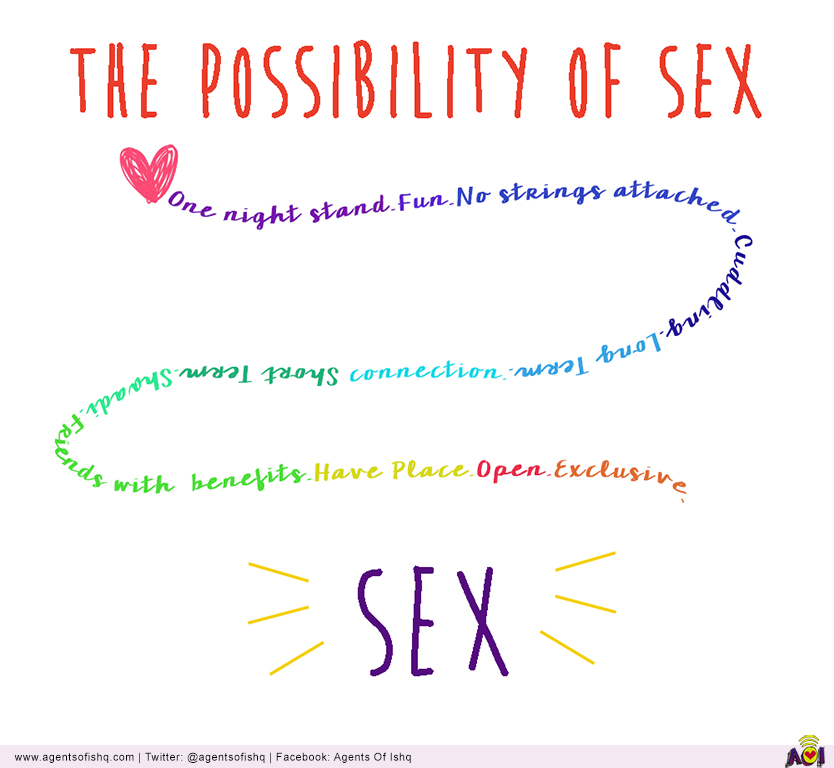 THE POSSIBILITY OF SEX
One night stand. Fun. No strings attached. Cuddling.
Long Term. connection. Short Term. Shaadi.
Friends with benefits. Have Place. Open. Exclusive.
SEX
www.agentsofishq.com | Twitter: @agentsofishq | Facebook: Agents Of Ishq
AOI